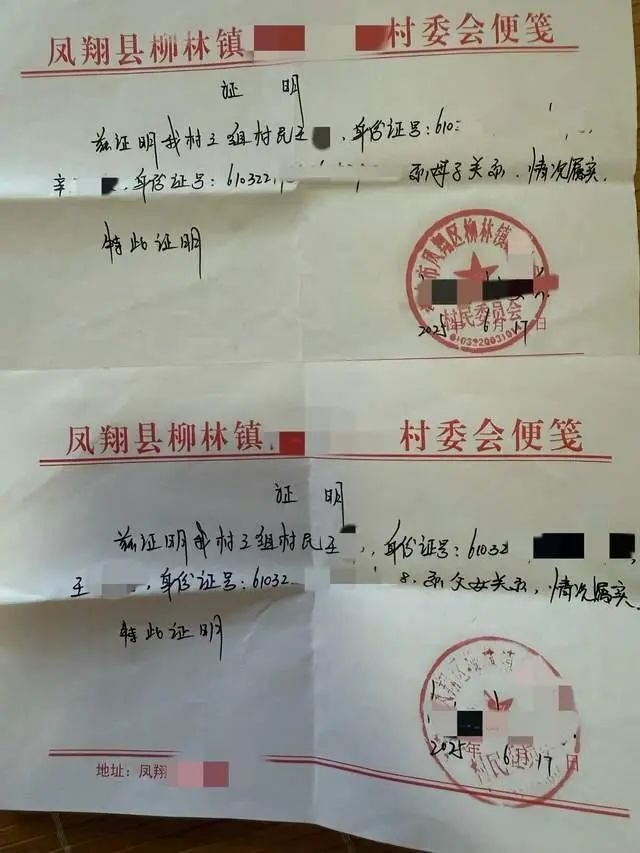 凤翔县柳林镇 村委会便笺
证 明
兹证明我村三组村民王 ，身份证号：610
辛 ，身份证号：610322 系母子关系，情况属实。
特此证明
市凤翔区柳林镇
村民委员会
2025年6月17日
凤翔县柳林镇 村委会便笺
证 明
兹证明我村三组村民王 ，身份证号：61032
王 ，身份证号：61032 8.系父女关系，情况属实。
特此证明
村民
2025年6月17日
地址：凤翔